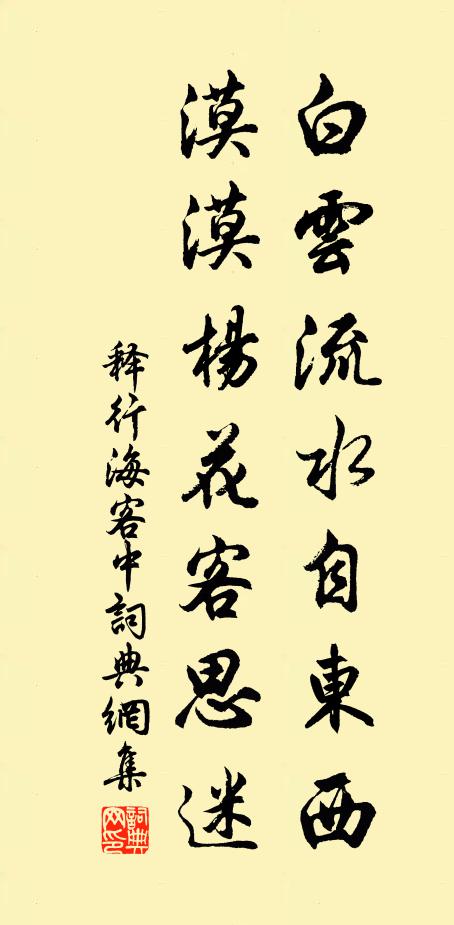 白雲流水自東西
漠漠楊花客思迷
释行海客中詞典網集
詞典网印